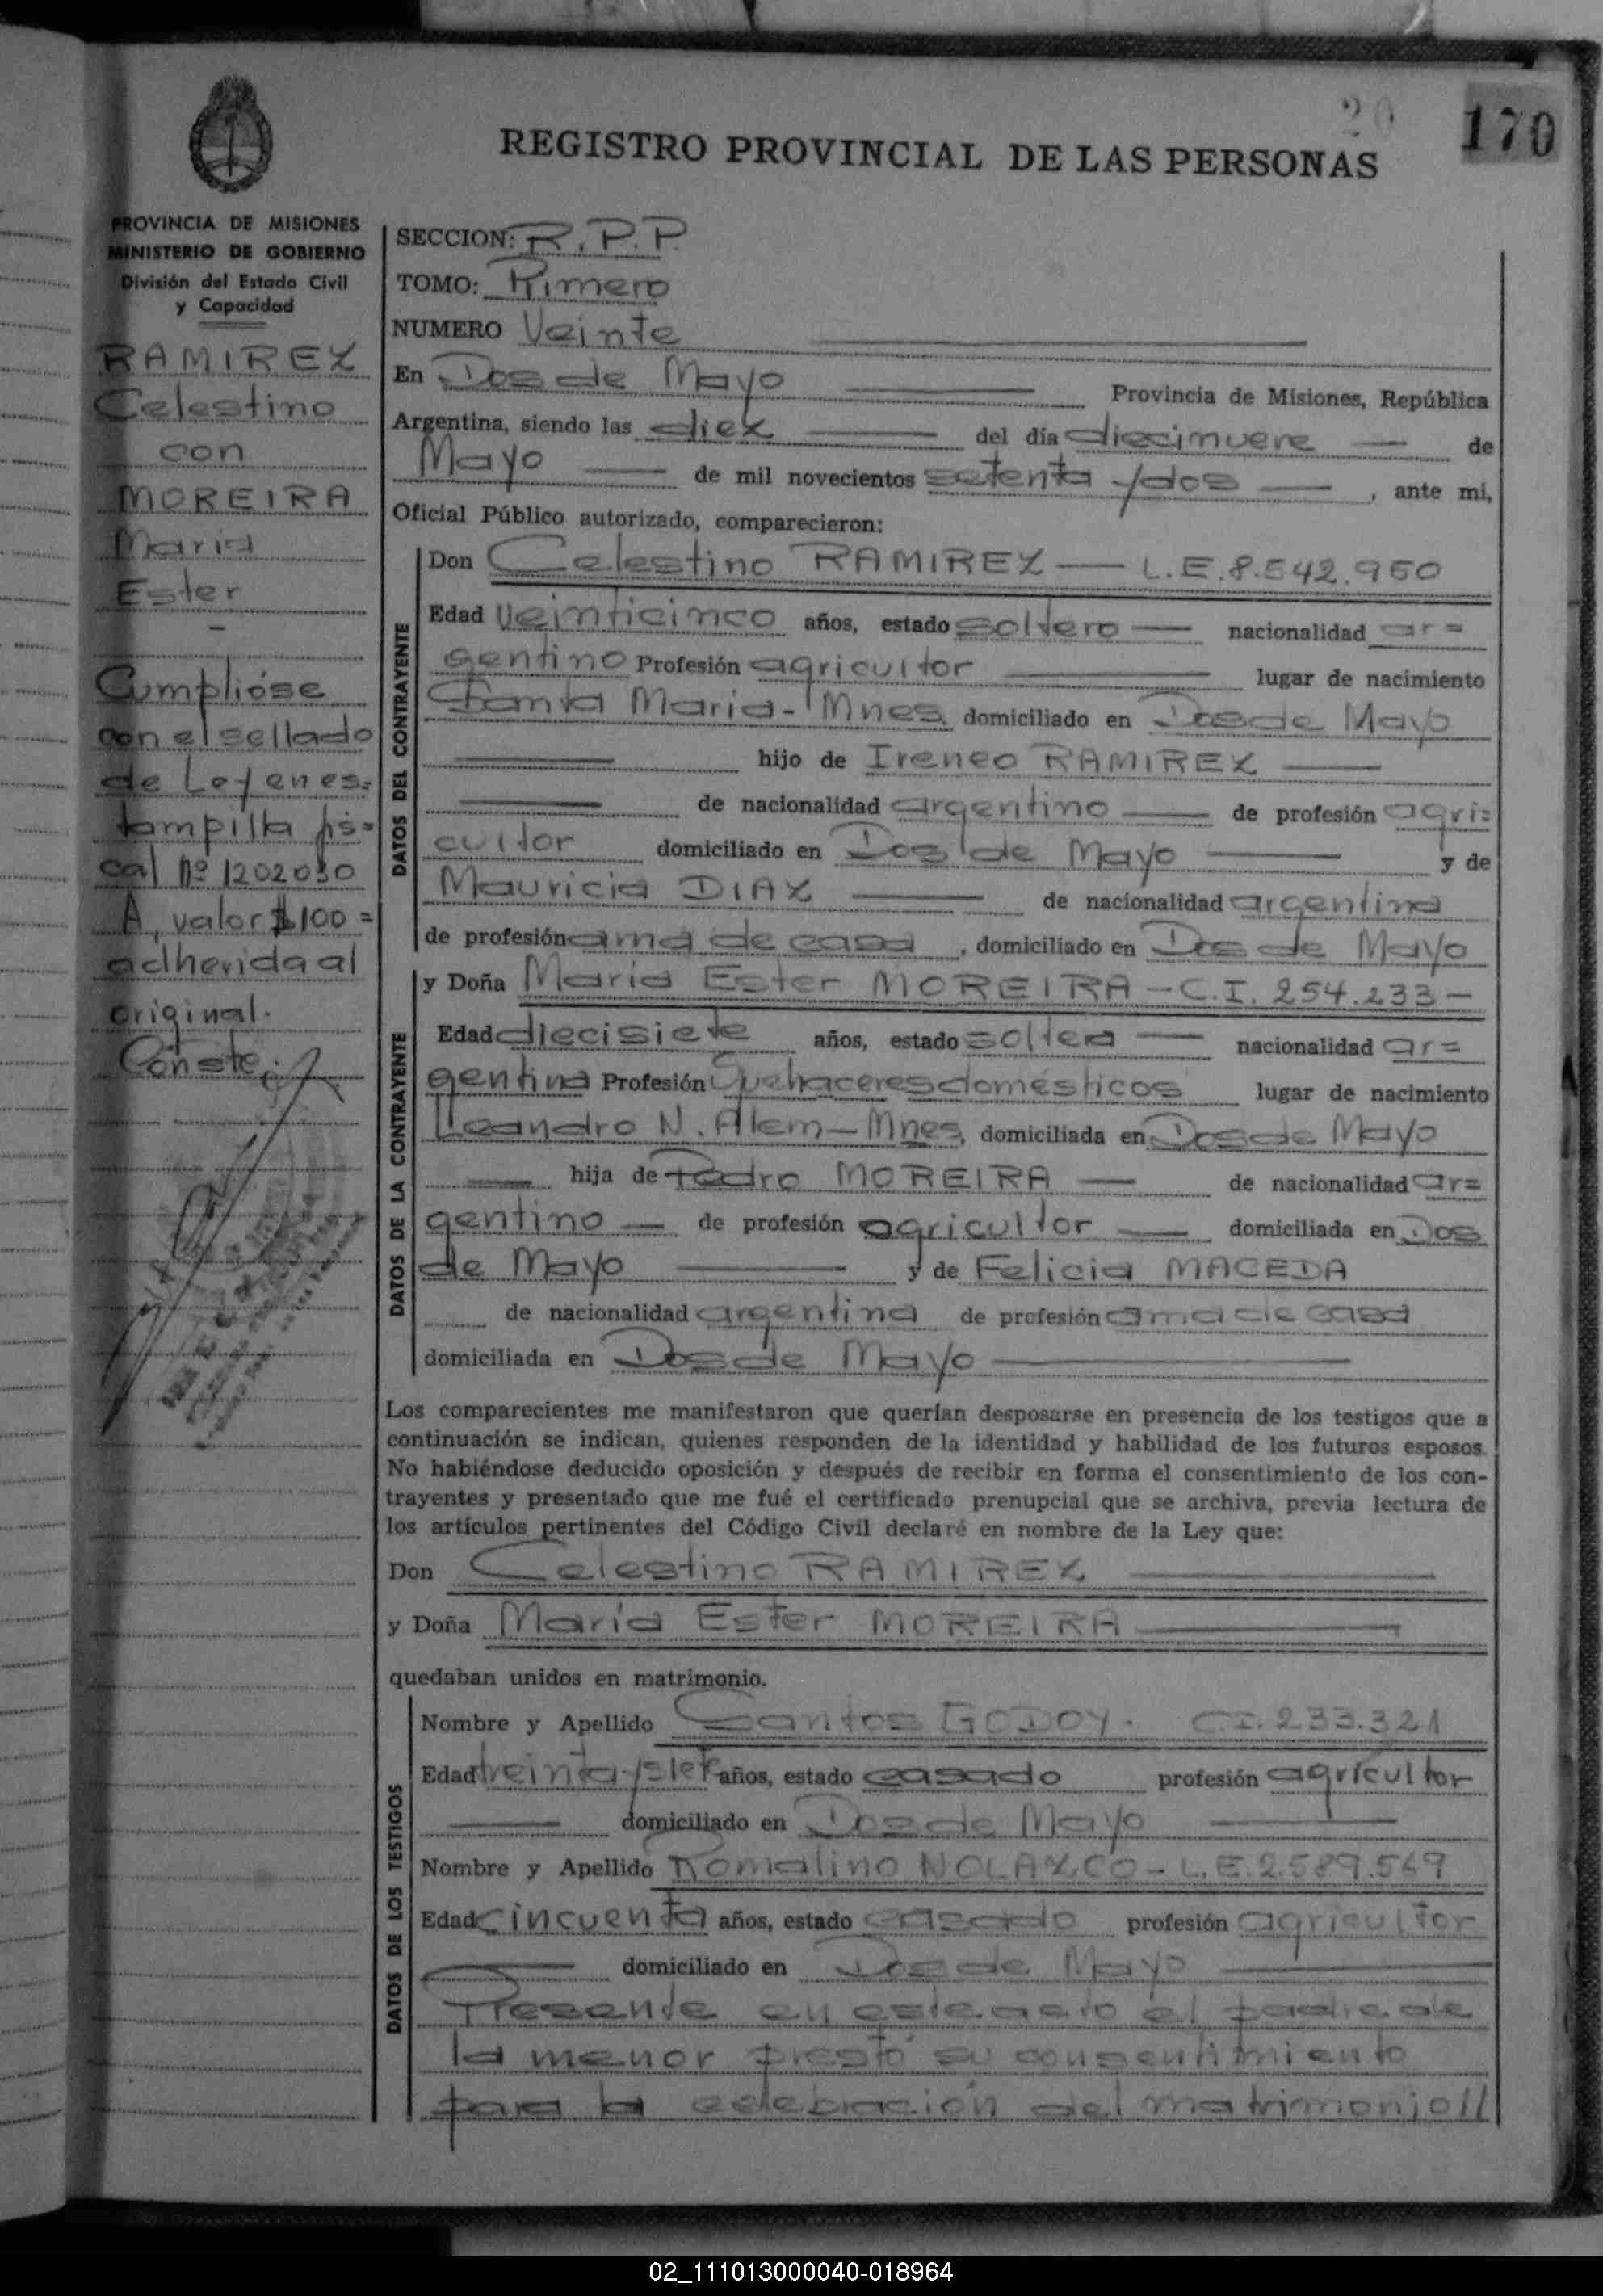 20
170
REGISTRO PROVINCIAL DE LAS PERSONAS
PROVINCIA DE MISIONES
MINISTERIO DE GOBIERNO
División del Estado Civil
y Capacidad
RAMIREZ
Celestino
con
MOREIRA
Maria
Ester
Cumplióse
con el sellado
de Ley en es=
tampilla fis=
cal Nº 1202030
A, valor $100=
adherida al
original.
Conste.
SECCION: R.P.P.
TOMO: Primero
NUMERO Veinte
En Dos de Mayo Provincia de Misiones, República
Argentina, siendo las diez del día diecinueve de
Mayo de mil novecientos setenta y dos, ante mi,
Oficial Público autorizado, comparecieron:
DATOS DEL CONTRAYENTE
Don Celestino RAMIREZ — L.E. 8.542.950
Edad veinticinco años, estado soltero — nacionalidad ar=
gentino Profesión agricultor lugar de nacimiento
Santa Maria - Mnes, domiciliado en Dos de Mayo
hijo de Ireneo RAMIREZ
de nacionalidad argentino de profesión agri=
cultor domiciliado en Dos de Mayo y de
Mauricia DIAZ de nacionalidad argentina
de profesión ama de casa, domiciliado en Dos de Mayo
DATOS DE LA CONTRAYENTE
y Doña Maria Ester MOREIRA — C.I. 254.233 —
Edad diecisiete años, estado soltera — nacionalidad ar=
gentina Profesión Quehaceres domésticos lugar de nacimiento
Leandro N. Alem — Mnes, domiciliada en Dos de Mayo
hija de Pedro MOREIRA — de nacionalidad ar=
gentino — de profesión agricultor — domiciliada en Dos
de Mayo y de Felicia MACEDA
de nacionalidad argentina de profesión ama de casa
domiciliada en Dos de Mayo
Los comparecientes me manifestaron que querían desposarse en presencia de los testigos que a
continuación se indican, quienes responden de la identidad y habilidad de los futuros esposos.
No habiéndose deducido oposición y después de recibir en forma el consentimiento de los con-
trayentes y presentado que me fué el certificado prenupcial que se archiva, previa lectura de
los artículos pertinentes del Código Civil declaré en nombre de la Ley que:
Don Celestino RAMIREZ
y Doña Maria Ester MOREIRA
quedaban unidos en matrimonio.
DATOS DE LOS TESTIGOS
Nombre y Apellido Santos GODOY. C.I. 233.321
Edad treinta y siete años, estado casado profesión agricultor
domiciliado en Dos de Mayo
Nombre y Apellido Romalino NOLAZCO - L.E. 2.589.569
Edad cincuenta años, estado casado profesión agricultor
domiciliado en Dos de Mayo
Presente en este acto el padre de
la menor prestó su consentimiento
para la celebración del matrimonio//
02_111013000040-018964